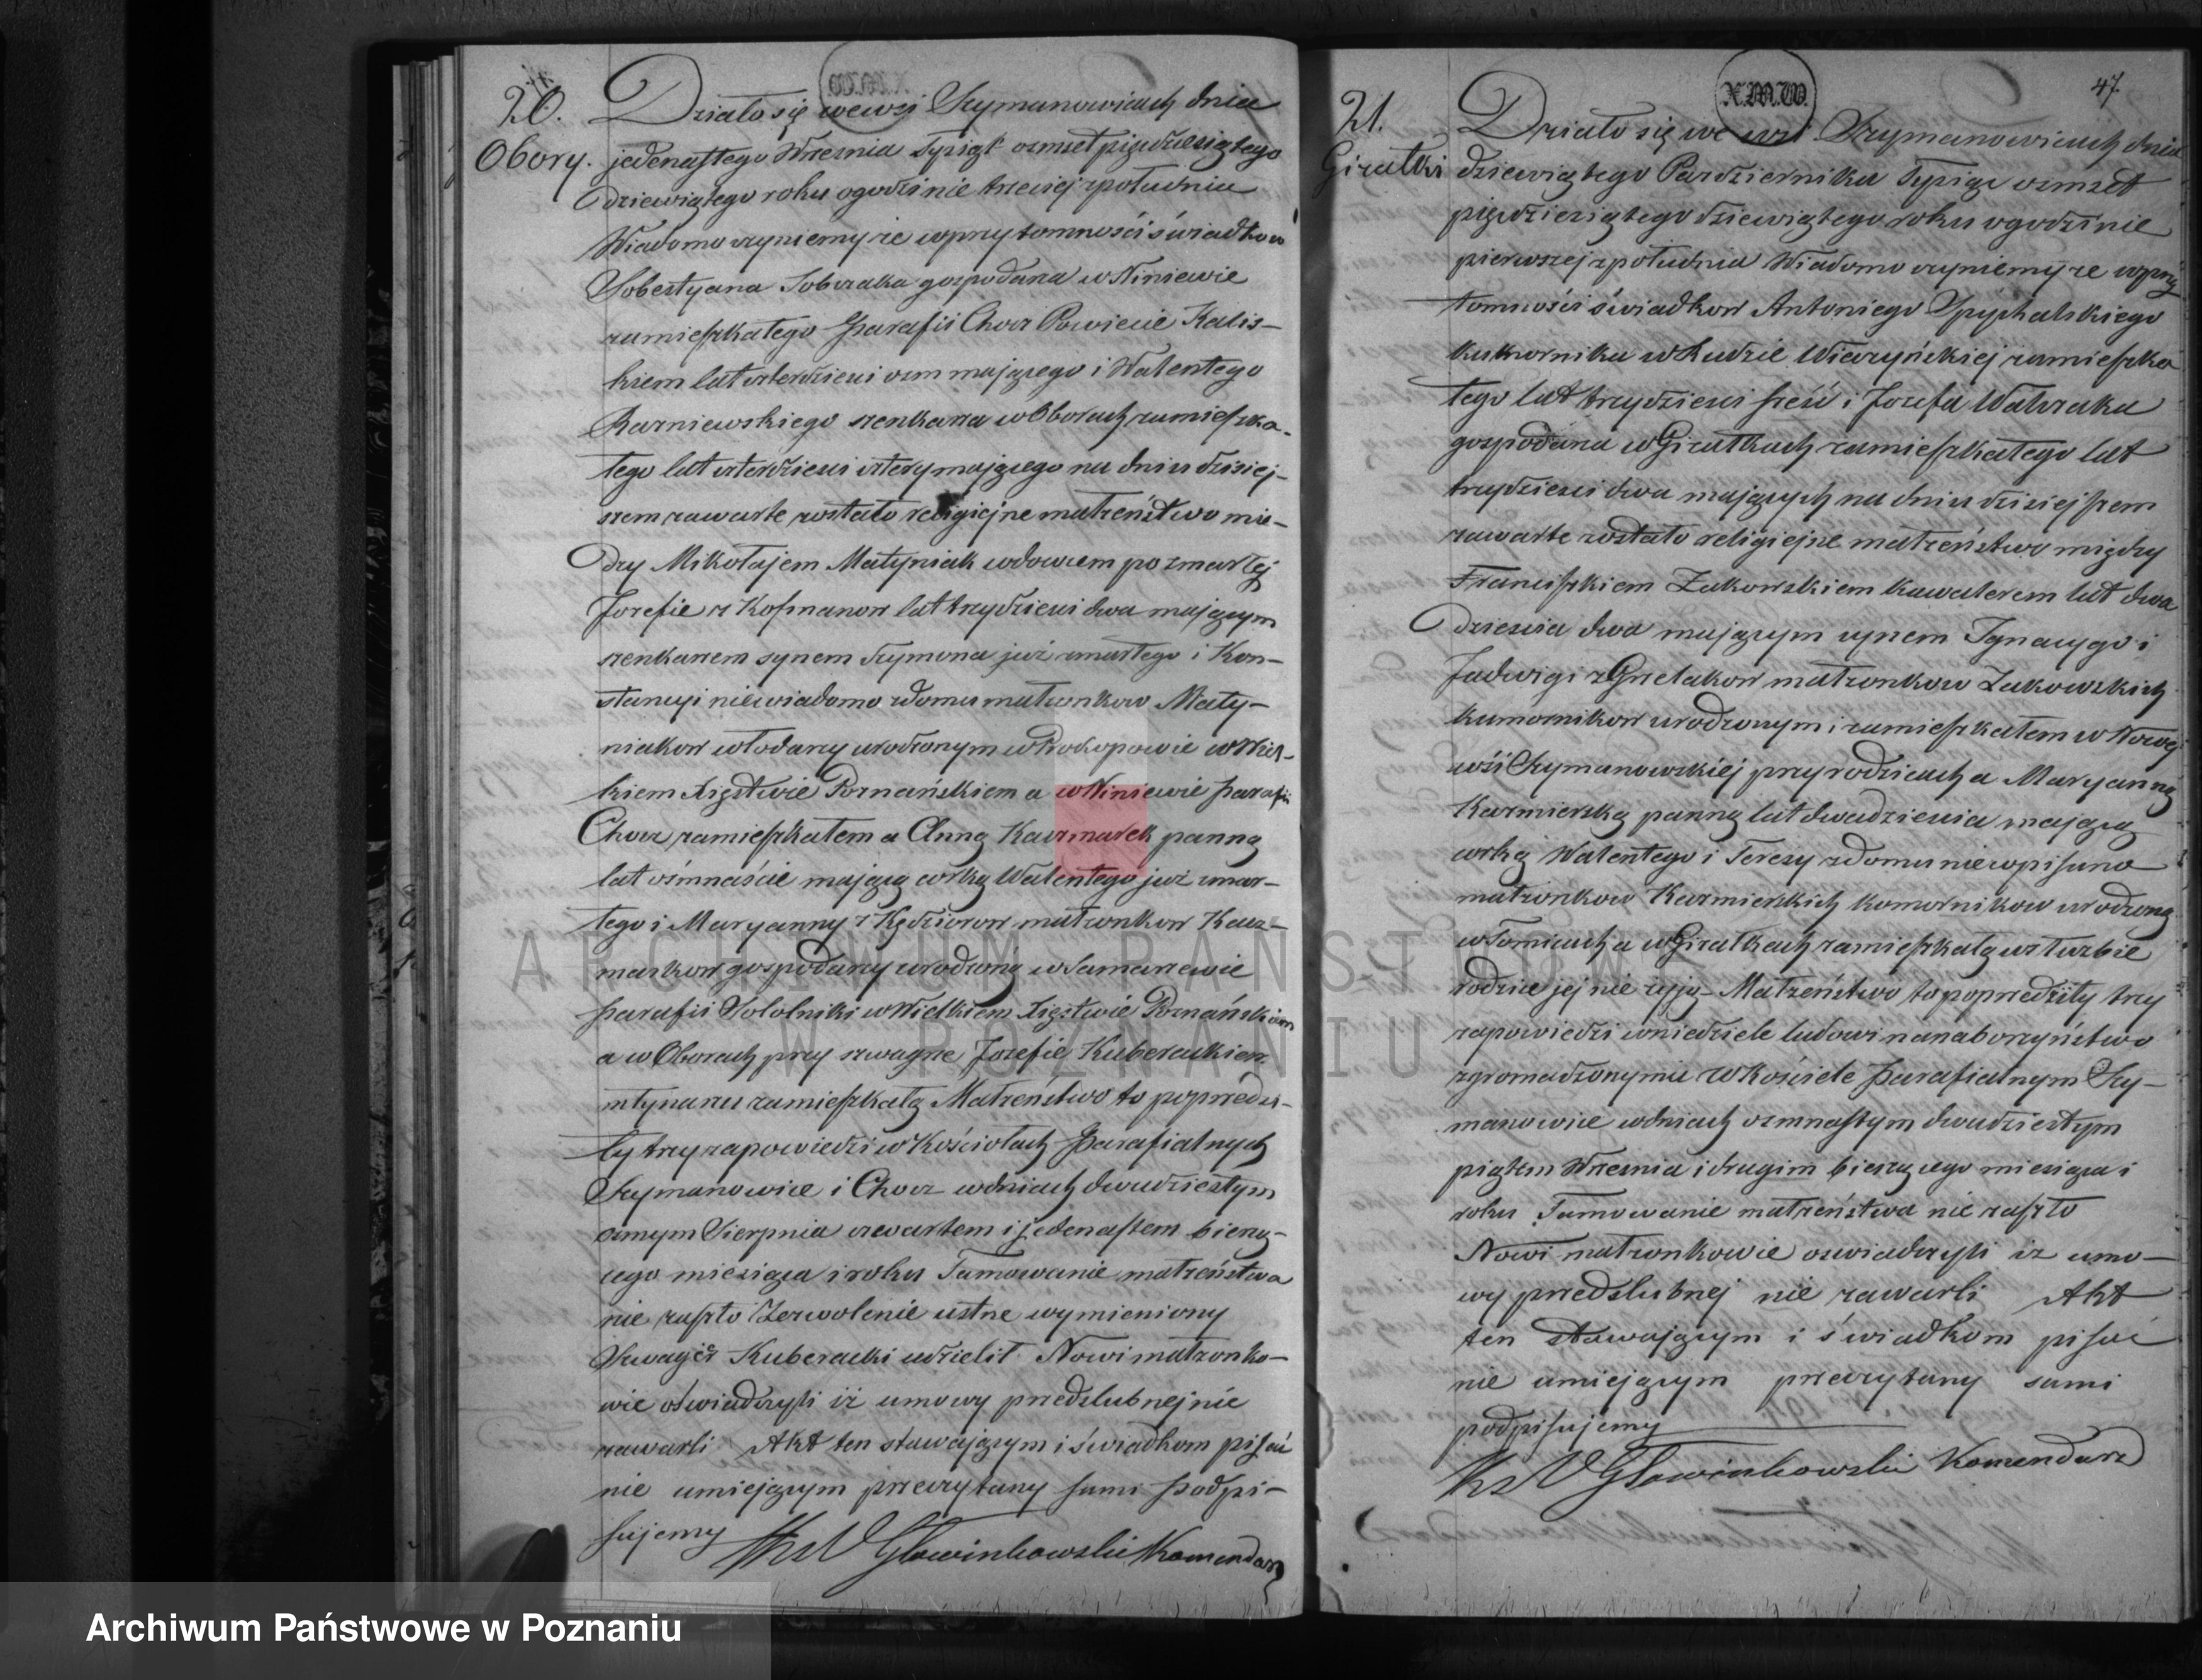 20.
Obory.
Działo się we wsi Szymanowicach dnia
jedenastego Września Tysiąc osmset pięćdziesiątego
dziewiątego roku o godzinie trzeciej z południa
Wiadomo czyniemy że w przytomności świadków
Sobestyana Sobczaka gospodarza w Niniewie
zamieszkałego parafii Chocz Powiecie Kalis-
kiem lat czterdzieści osm mającego i Walentego
Karniewskiego szenkarza w Oborach zamieszka-
łego lat czterdzieści cztery mającego na dniu dzisiej-
szem zawarte zostało religiejne małżeństwo mie-
dzy Mikołajem Matyniak wdowcem po zmarłej
Jozefie z Kosmanow lat trzydzieści dwa mającym
szenkarzem synem Szymona już zmarłego i Kon-
stancyi niewiadomo z domu małżonkow Maty-
niakow włodarzy urodzonym w Prokopowie w Wiel-
kiem Xięstwie Poznańskiem a w Niniewie parafii
Chocz zamieszkałem a Anną Kaczmarek panną
lat ośmnaście mającą corką Walentego już zmar-
łego i Maryanny z Kędziorow małżonkow Kacz-
markow gospodarzy urodzoną w Samarzewie
parafii Sololniki w Wielkiem Xięstwie Poznańskiem
a w Oborach przy szwagrze Jozefie Kuberackiem
młynarzu zamieszkałą Małżeństwo to poprzedzi-
ły trzy zapowiedzi w Kościołach Parafialnych
Szymanowice i Chocz w dniach dwudziestym
osmym Sierpnia czwartem i jedenastem bieżą-
cego miesiąca i roku Tamowanie małżeństwa
nie zaszło Zezwolenie ustne wymieniony
Szwagier Kuberacki udzielił Nowi małżonko-
wie oświadczyli iż umowy przedslubnej nie
zawarli Akt ten stawającym i świadkom pisać
nie umiejącym przeczytany sami podpi-
sujemy Ks N Gławinkowski Komendarz
X.M.W.
47.
21.
Giżałki
Działo się we wsi Szymanowicach dnia
dziewiątego Pazdziernika Tysiąc osmset
pięćdziesiątego dziewiątego roku o godzinie
pierwszej z południa Wiadomo czyniemy że w przy
tomności świadkow Antoniego Spychalskiego
komornika w Rudzie Wieczyńskiej zamieszka
łego lat trzydzieści sześć i Jozefa Walczaka
gospodarza w Giżałkach zamieszkałego lat
trzydzieści dwa mających na dniu dzisiejszem
zawarte zostało religiejne małżeństwo między
Franciszkiem Żakowskiem kawalerem lat dwa
dziescia dwa mającym synem Ignacygo i
Jadwigi z Grzelakow małżonkow Żakowskich
komornikow urodzonym i zamieszkałem w Nowej
wśi Szymanowskiej przy rodzicach a Maryanną
Kaźmierską panną lat dwadziescia mającą
corką Walentego i Teresy z domu niewpisano
małżonkow Kaźmierskich komornikow urodzoną
w Tomicach a w Giżałkach zamieszkałą w służbie
rodzice jej nie żyją Małżeństwo to poprzedziły trzy
zapowiedzi w niedziele ludowi na nabożeństwo
zgromadzonymu w Kościele Parafialnym Szy-
manowice w dniach osmnastym dwudziestym
piątem Września i drugim bieżącego miesiąca i
roku Tamowanie małżeństwa nie zaszło
Nowi małżonkowie oswiadczyli iz umo-
wy przedslubnej nie zawarli Akt
ten stawającym i świadkom pisać
nie umiejącym przeczytany sami
podpisujemy
Ks N Gławinkowski Komendarz
ARCHIWUM PAŃSTWOWE
W POZNANIU
Archiwum Państwowe w Poznaniu